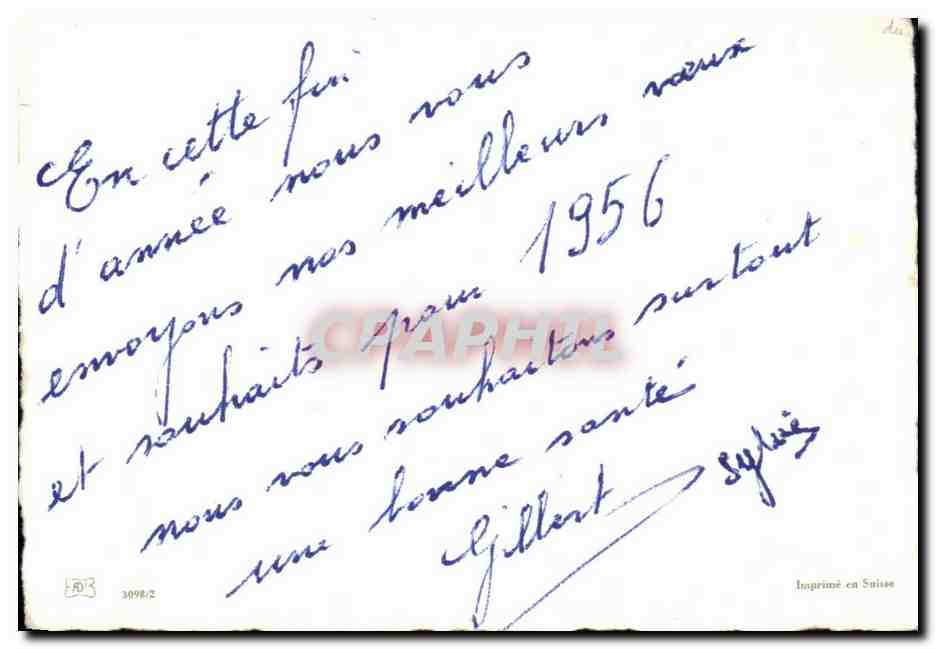 du
En cette fin
d'année nous vous
envoyons nos meilleurs vœux
et souhaits pour 1956
CPAPHIL
nous vous souhaitons surtout
une bonne santé
Gilbert Sylvie
3098/2
Imprimé en Suisse